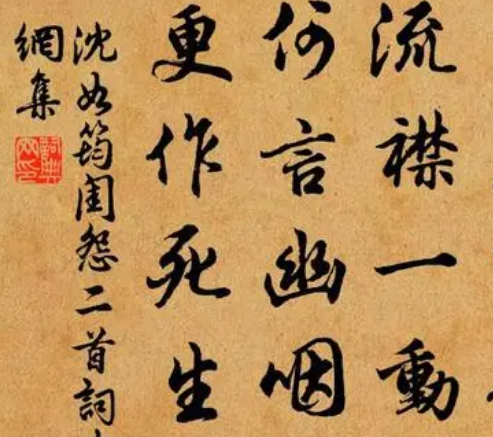 流襟一動
何言幽咽
更作死生
沈如筠閨怨二首詞
網集